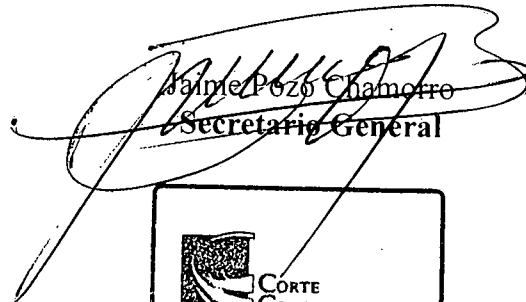 Jaime Pozo Chamorro
Secretario General
CORTE